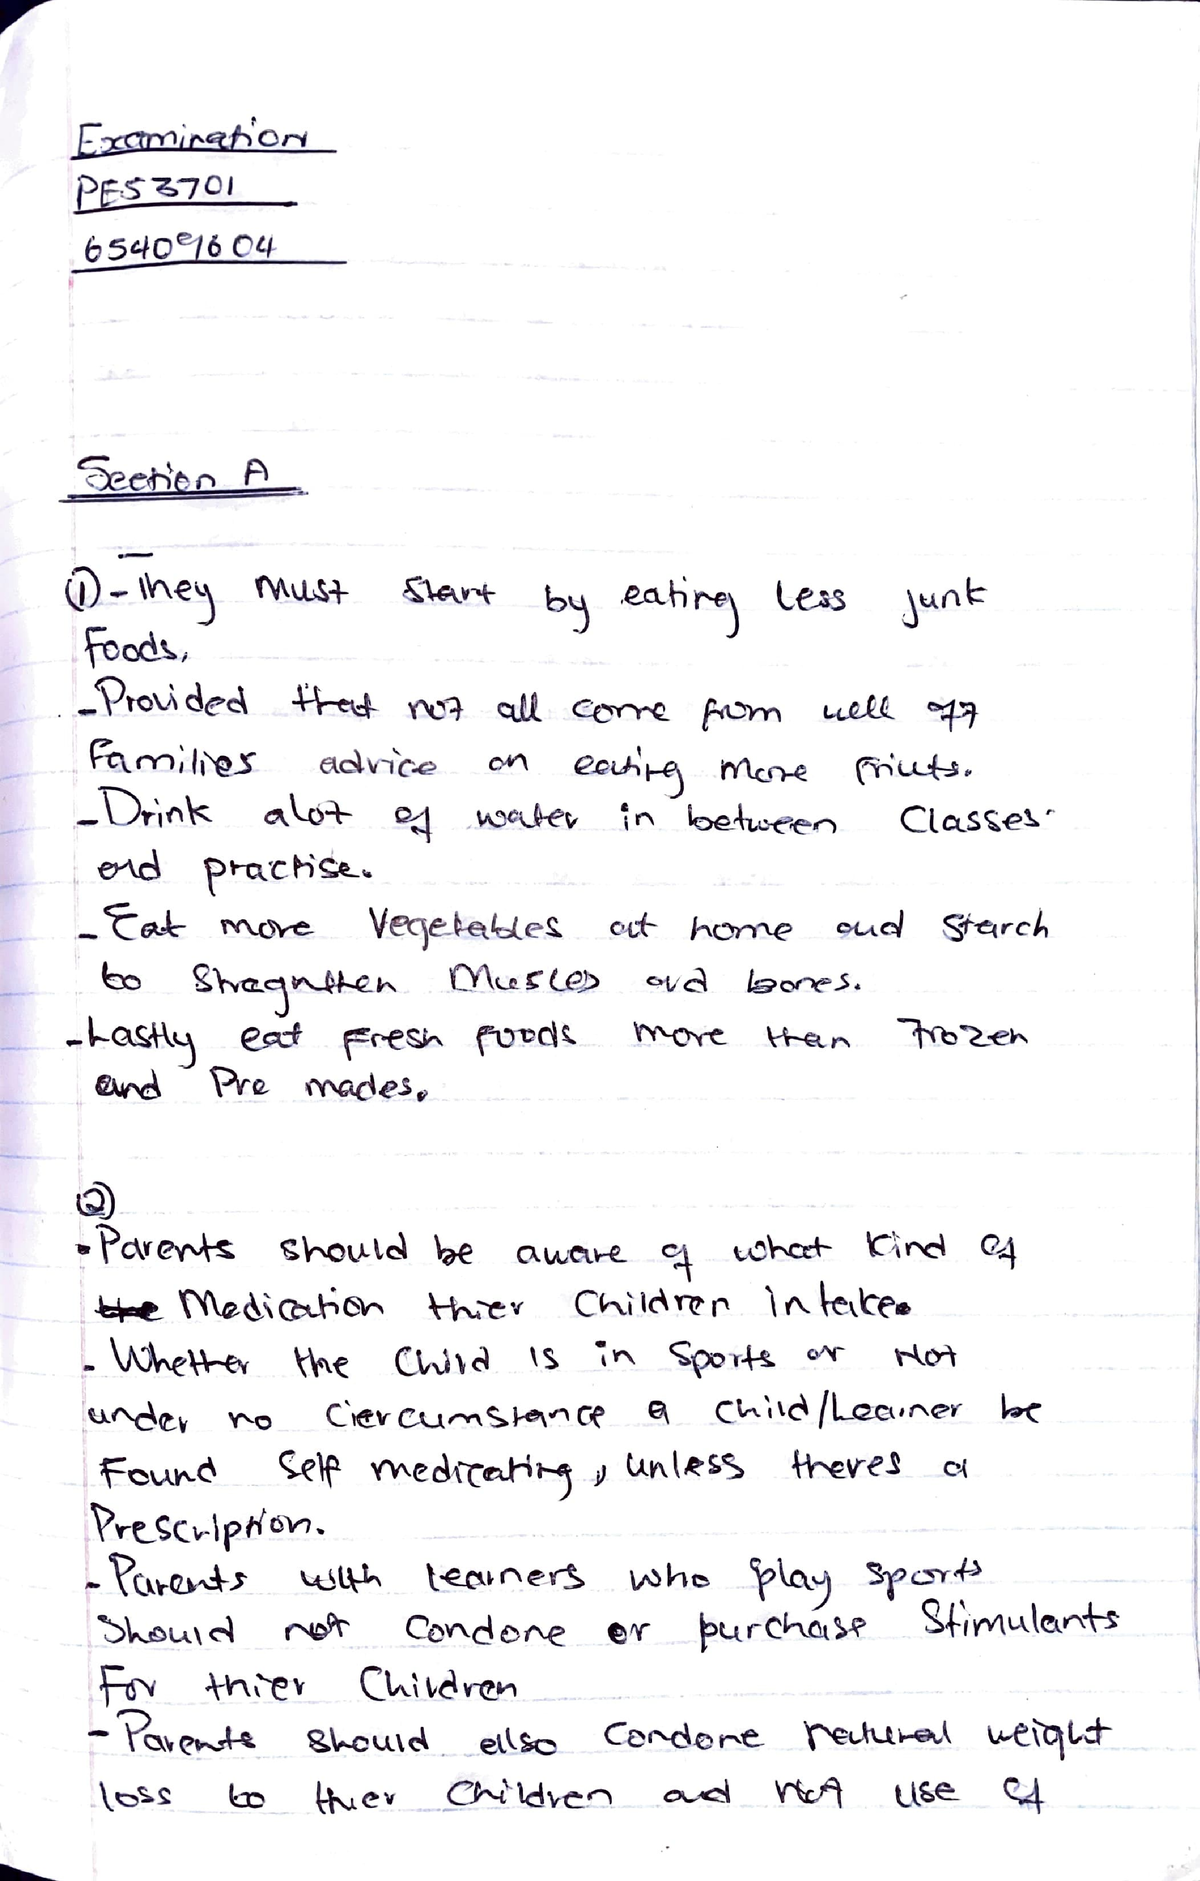 Examination
PES3701
65409604
Section A
① - They Must Start by eating less junk
foods,
- Provided that not all come from well off
families advice on eating more friuts.
- Drink alot of water in between Classes
and practise.
- Eat more Vegetables at home and Starch
to Stragnthen Muscles and bones.
- Lastly eat Fresh foods more than Frozen
and Pre mades.
②
- Parents should be aware of what kind of
the Medication thier Children intake.
- Whether the Child is in Sports or Not
under no Ciercumstance a child/Learner be
Found Self medicating, unless theres a
Prescription.
- Parents with learners who play sports
Should not Condone or purchase Stimulants
For thier Children
- Parents should also Condone natural weight
loss to thier Children and not use of